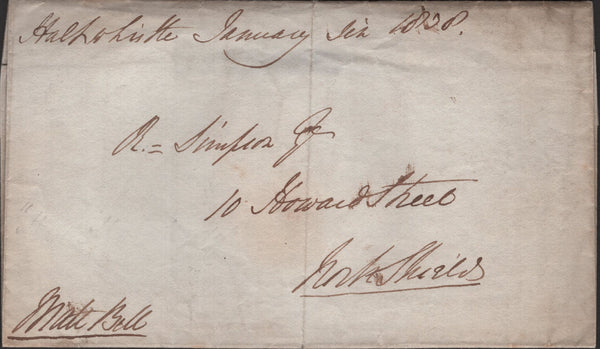 Haltwhistle January Six 1838.
R. = Simpson Esq
10 Howard Street
North Shields
Matt Bell